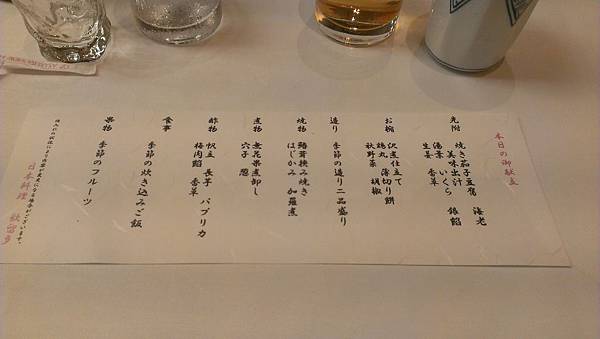 本日の御献立
先附
焼き茄子豆腐 海老
美味出汁 いくら 銀餡
湯葉 香草
生姜
お椀
沢煮仕立て
鶏丸 薄切り餅
秋野菜 胡椒
造り
季節の造り二品盛り
焼物
鰆茸挟み焼き
はじかみ 加羅煮
煮物
無花果煮卸し
穴子 葱
酢物
帆立 長芋 パプリカ
梅肉餡 香草
食事
季節の炊き込みご飯
果物
季節のフルーツ
日本料理